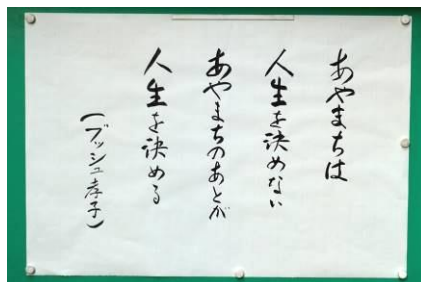 あやまちは
人生を決めない
あやまちのあとが
人生を決める
(ブッシュ孝子)